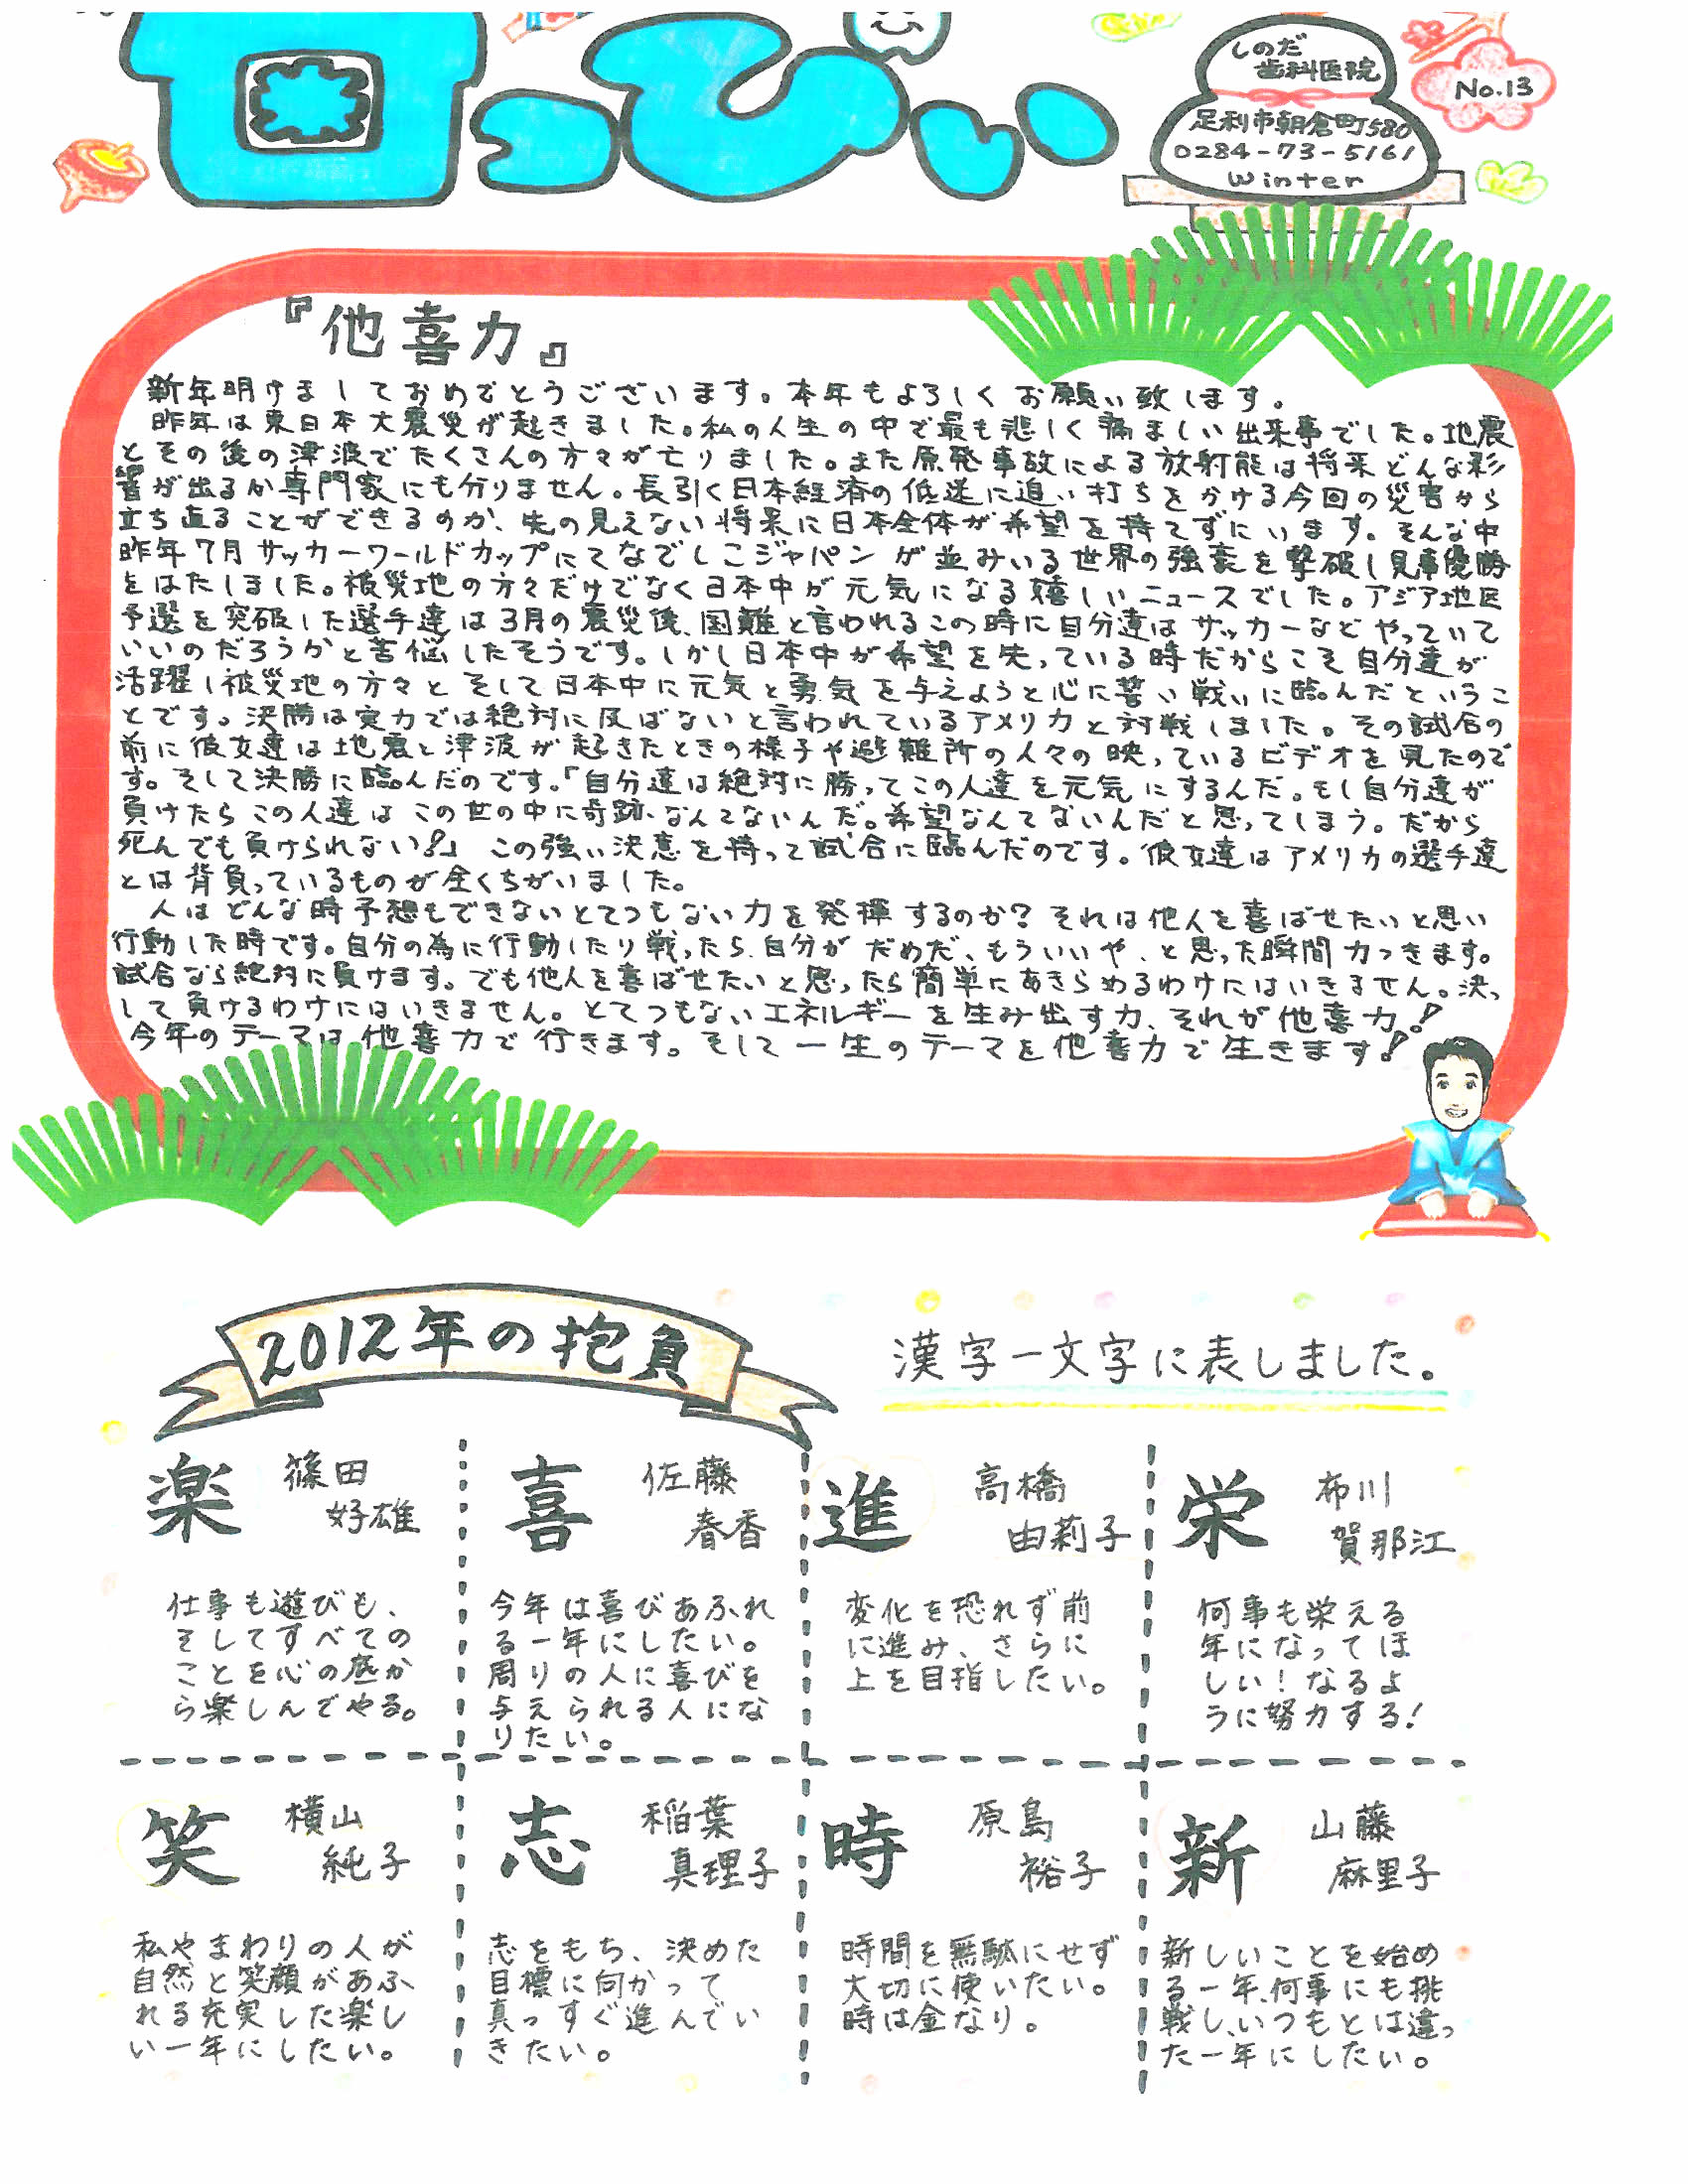 っぴぃ
しのだ
歯科医院
No.13
足利市朝倉町580
0284-73-5161
Winter
『他喜力』
新年明けましておめでとうございます。本年もよろしくお願い致します。
昨年は東日本大震災が起きました。私の人生の中で最も悲しく痛ましい出来事でした。地震
とその後の津波でたくさんの方々が亡りました。また原発事故による放射能は将来どんな影
響が出るか専門家にも分りません。長引く日本経済の低迷に追い打ちをかける今回の災害から
立ち直ることができるのか、先の見えない将来に日本全体が希望を持てずにいます。そんな中
昨年7月サッカーワールドカップにてなでしこジャパンが並みいる世界の強豪を撃破し見事優勝
をはたしました。被災地の方々だけでなく日本中が元気になる嬉しいニュースでした。アジア地区
予選を突破した選手達は3月の震災後、国難と言われるこの時に自分達はサッカーなどやっていて
いいのだろうかと苦悩したそうです。しかし日本中が希望を失っている時だからこそ自分達が
活躍し被災地の方々とそして日本中に元気と勇気を与えようと心に誓い戦いに臨んだというこ
とです。決勝は実力では絶対に及ばないと言われているアメリカと対戦しました。その試合の
前に彼女達は地震と津波が起きたときの様子や避難所の人々の映っているビデオを見たので
す。そして決勝に臨んだのです。「自分達は絶対に勝ってこの人達を元気にするんだ。もし自分達が
負けたらこの人達はこの世の中に奇跡なんてないんだ。希望なんてないんだと思ってしまう。だから
死んでも負けられない!」 この強い決意を持って試合に臨んだのです。彼女達はアメリカの選手達
とは背負っているものが全くちがいました。
人はどんな時予想もできないとてつもない力を発揮するのか?それは他人を喜ばせたいと思い
行動した時です。自分の為に行動したり戦ったら、自分がだめだ、もういいや、と思った瞬間力つきます。
試合なら絶対に負けます。でも他人を喜ばせたいと思ったら簡単にあきらめるわけにはいきません。決っ
して負けるわけにはいきません。とてつもないエネルギーを生み出す力、それが他喜力!
今年のテーマは他喜力で行きます。そして一生のテーマを他喜力で生きます!
2012年の抱負
漢字一文字に表しました。
楽 篠田
好雄
仕事も遊びも、
そしてすべての
ことを心の底か
ら楽しんでやる。
喜 佐藤
春香
今年は喜びあふれ
る一年にしたい。
周りの人に喜びを
与えられる人にな
りたい。
進 高橋
由莉子
変化を恐れず前
に進み、さらに
上を目指したい。
栄 布川
賀那江
何事も栄える
年になってほ
しい!なるよ
うに努力する!
笑 横山
純子
私やまわりの人が
自然と笑顔があふ
れる充実した楽し
い一年にしたい。
志 稲葉
真理子
志をもち、決めた
目標に向かって
真っすぐ進んでい
きたい。
時 原島
裕子
時間を無駄にせず
大切に使いたい。
時は金なり。
新 山藤
麻里子
新しいことを始め
る一年、何事にも挑
戦し、いつもとは違っ
た一年にしたい。